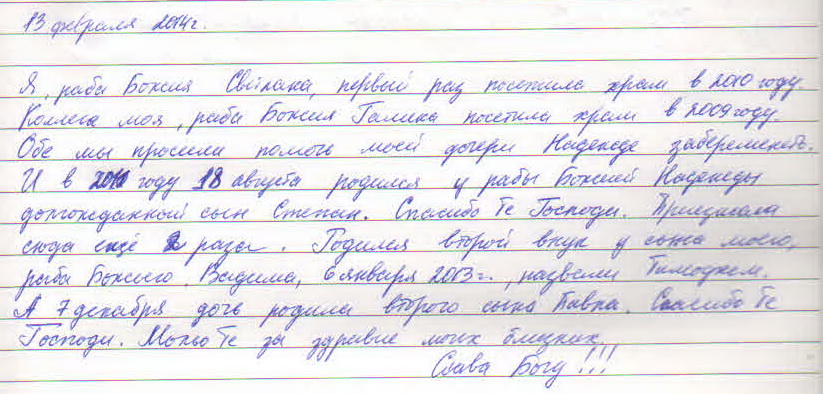 13 февраля 2014г.
Я, раба Божия Светлана, первый раз посетила храм в 2010 году.
Коллега моя, раба Божия Галина посетила храм в 2009 году.
Обе мы просили помочь моей дочери Надежде забеременеть.
И в году 18 августа родился у рабы Божией Надежды
долгожданный сын Степан. Спасибо Те Господи. Приезжала
сюда ещё 2 раза. Родился второй внук у сына моего,
раба Божьего, Вадима, 6 января 2013г., назвали Тимофеем.
А 7 декабря дочь родила второго сына Павла. Спасибо Те
Господи. Молю Те за здравие моих близких.
Слава Богу!!!